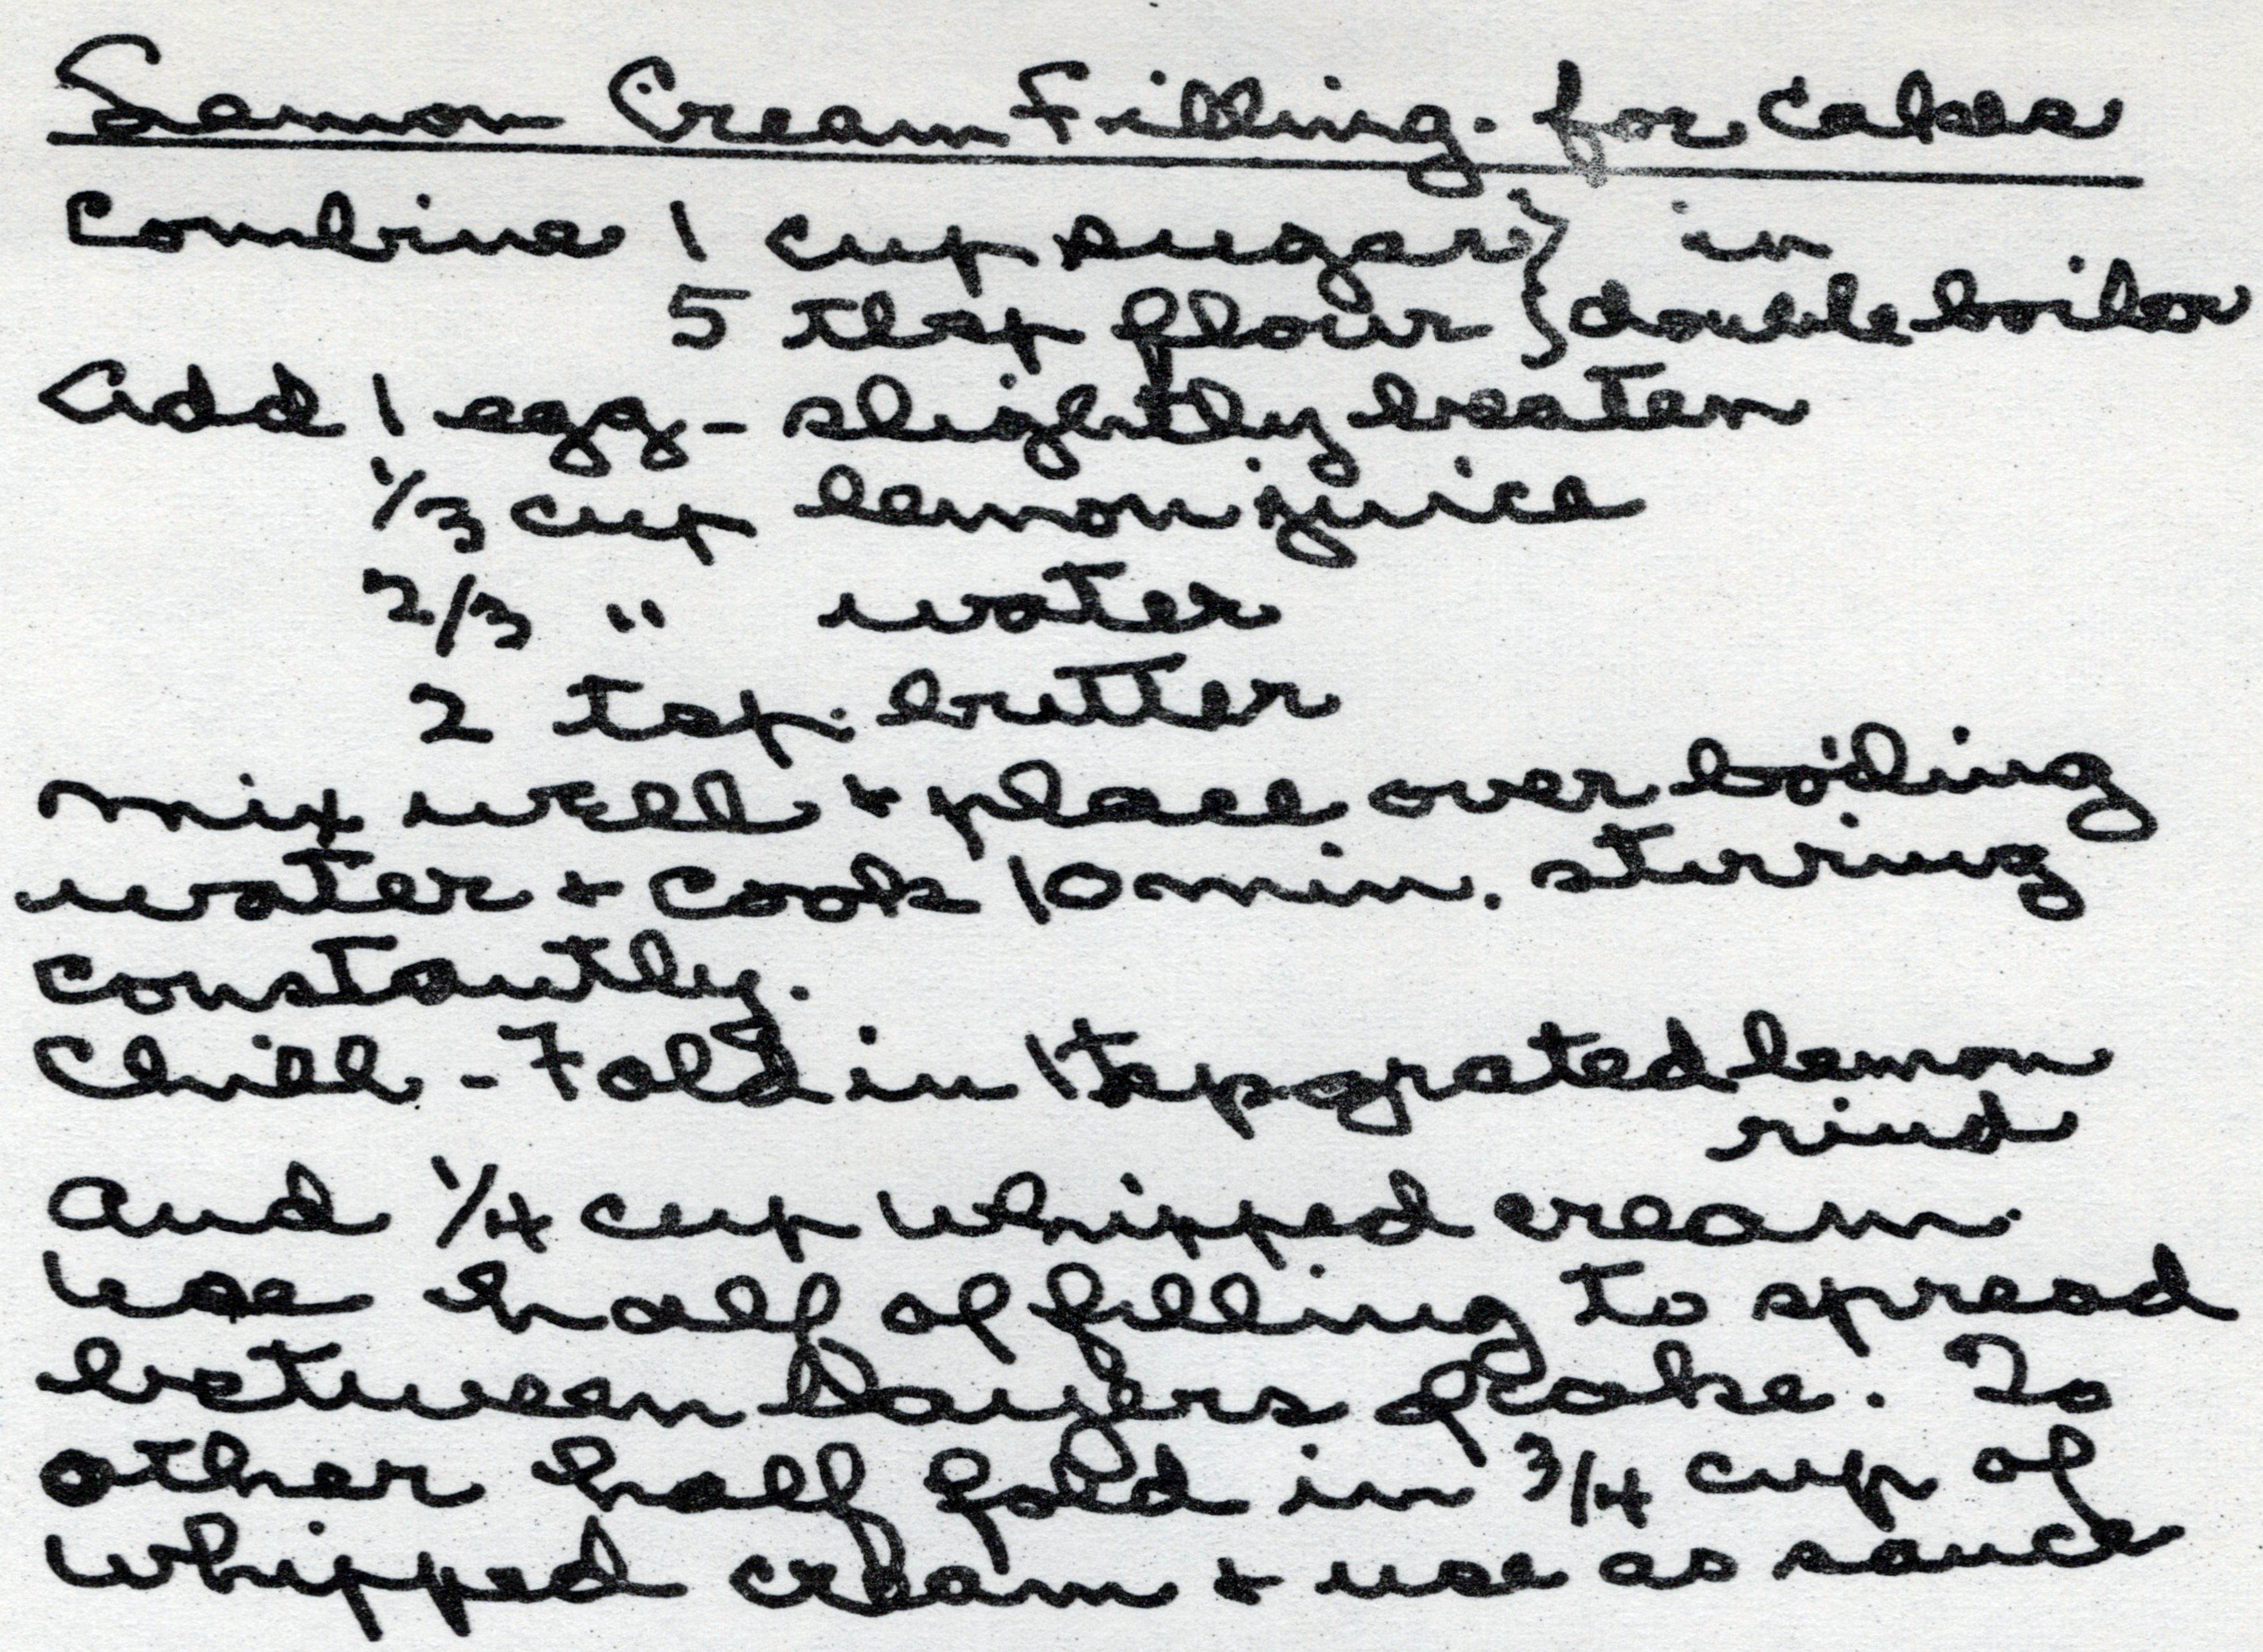 Lemon Cream Filling. for Cakes
Combine 1 cup sugar } in
5 tbsp flour } double boiler
Add 1 egg - slightly beaten
1/3 cup lemon juice
2/3 " water
2 tsp. butter
Mix well + place over boiling
water + cook 10 min. stirring
constantly.
Chill - Fold in 1 tsp grated lemon
rind
and 1/4 cup whipped cream.
Use half of filling to spread
between layers of cake. To
other half fold in 3/4 cup of
whipped cream + use as sauce